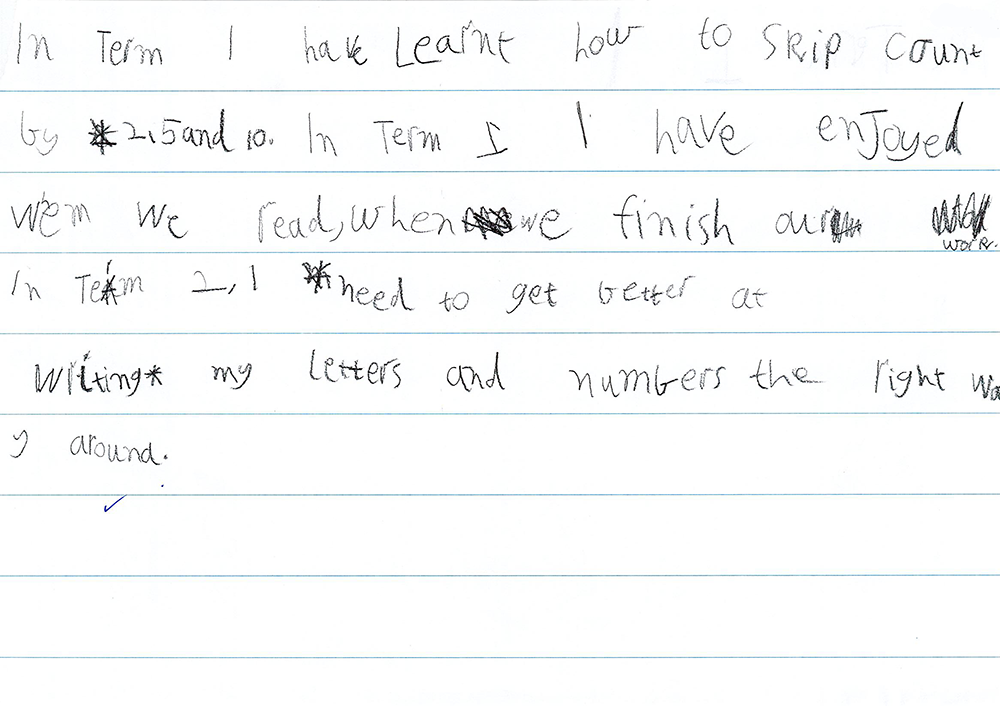 In Term 1 have Learnt how to Skip count
by 2,5 and 10. In Term 1 I have enJoyed
wem we read, when we finish our work.
In Term 2, I need to get better at
writing my letters and numbers the right wa
y around.